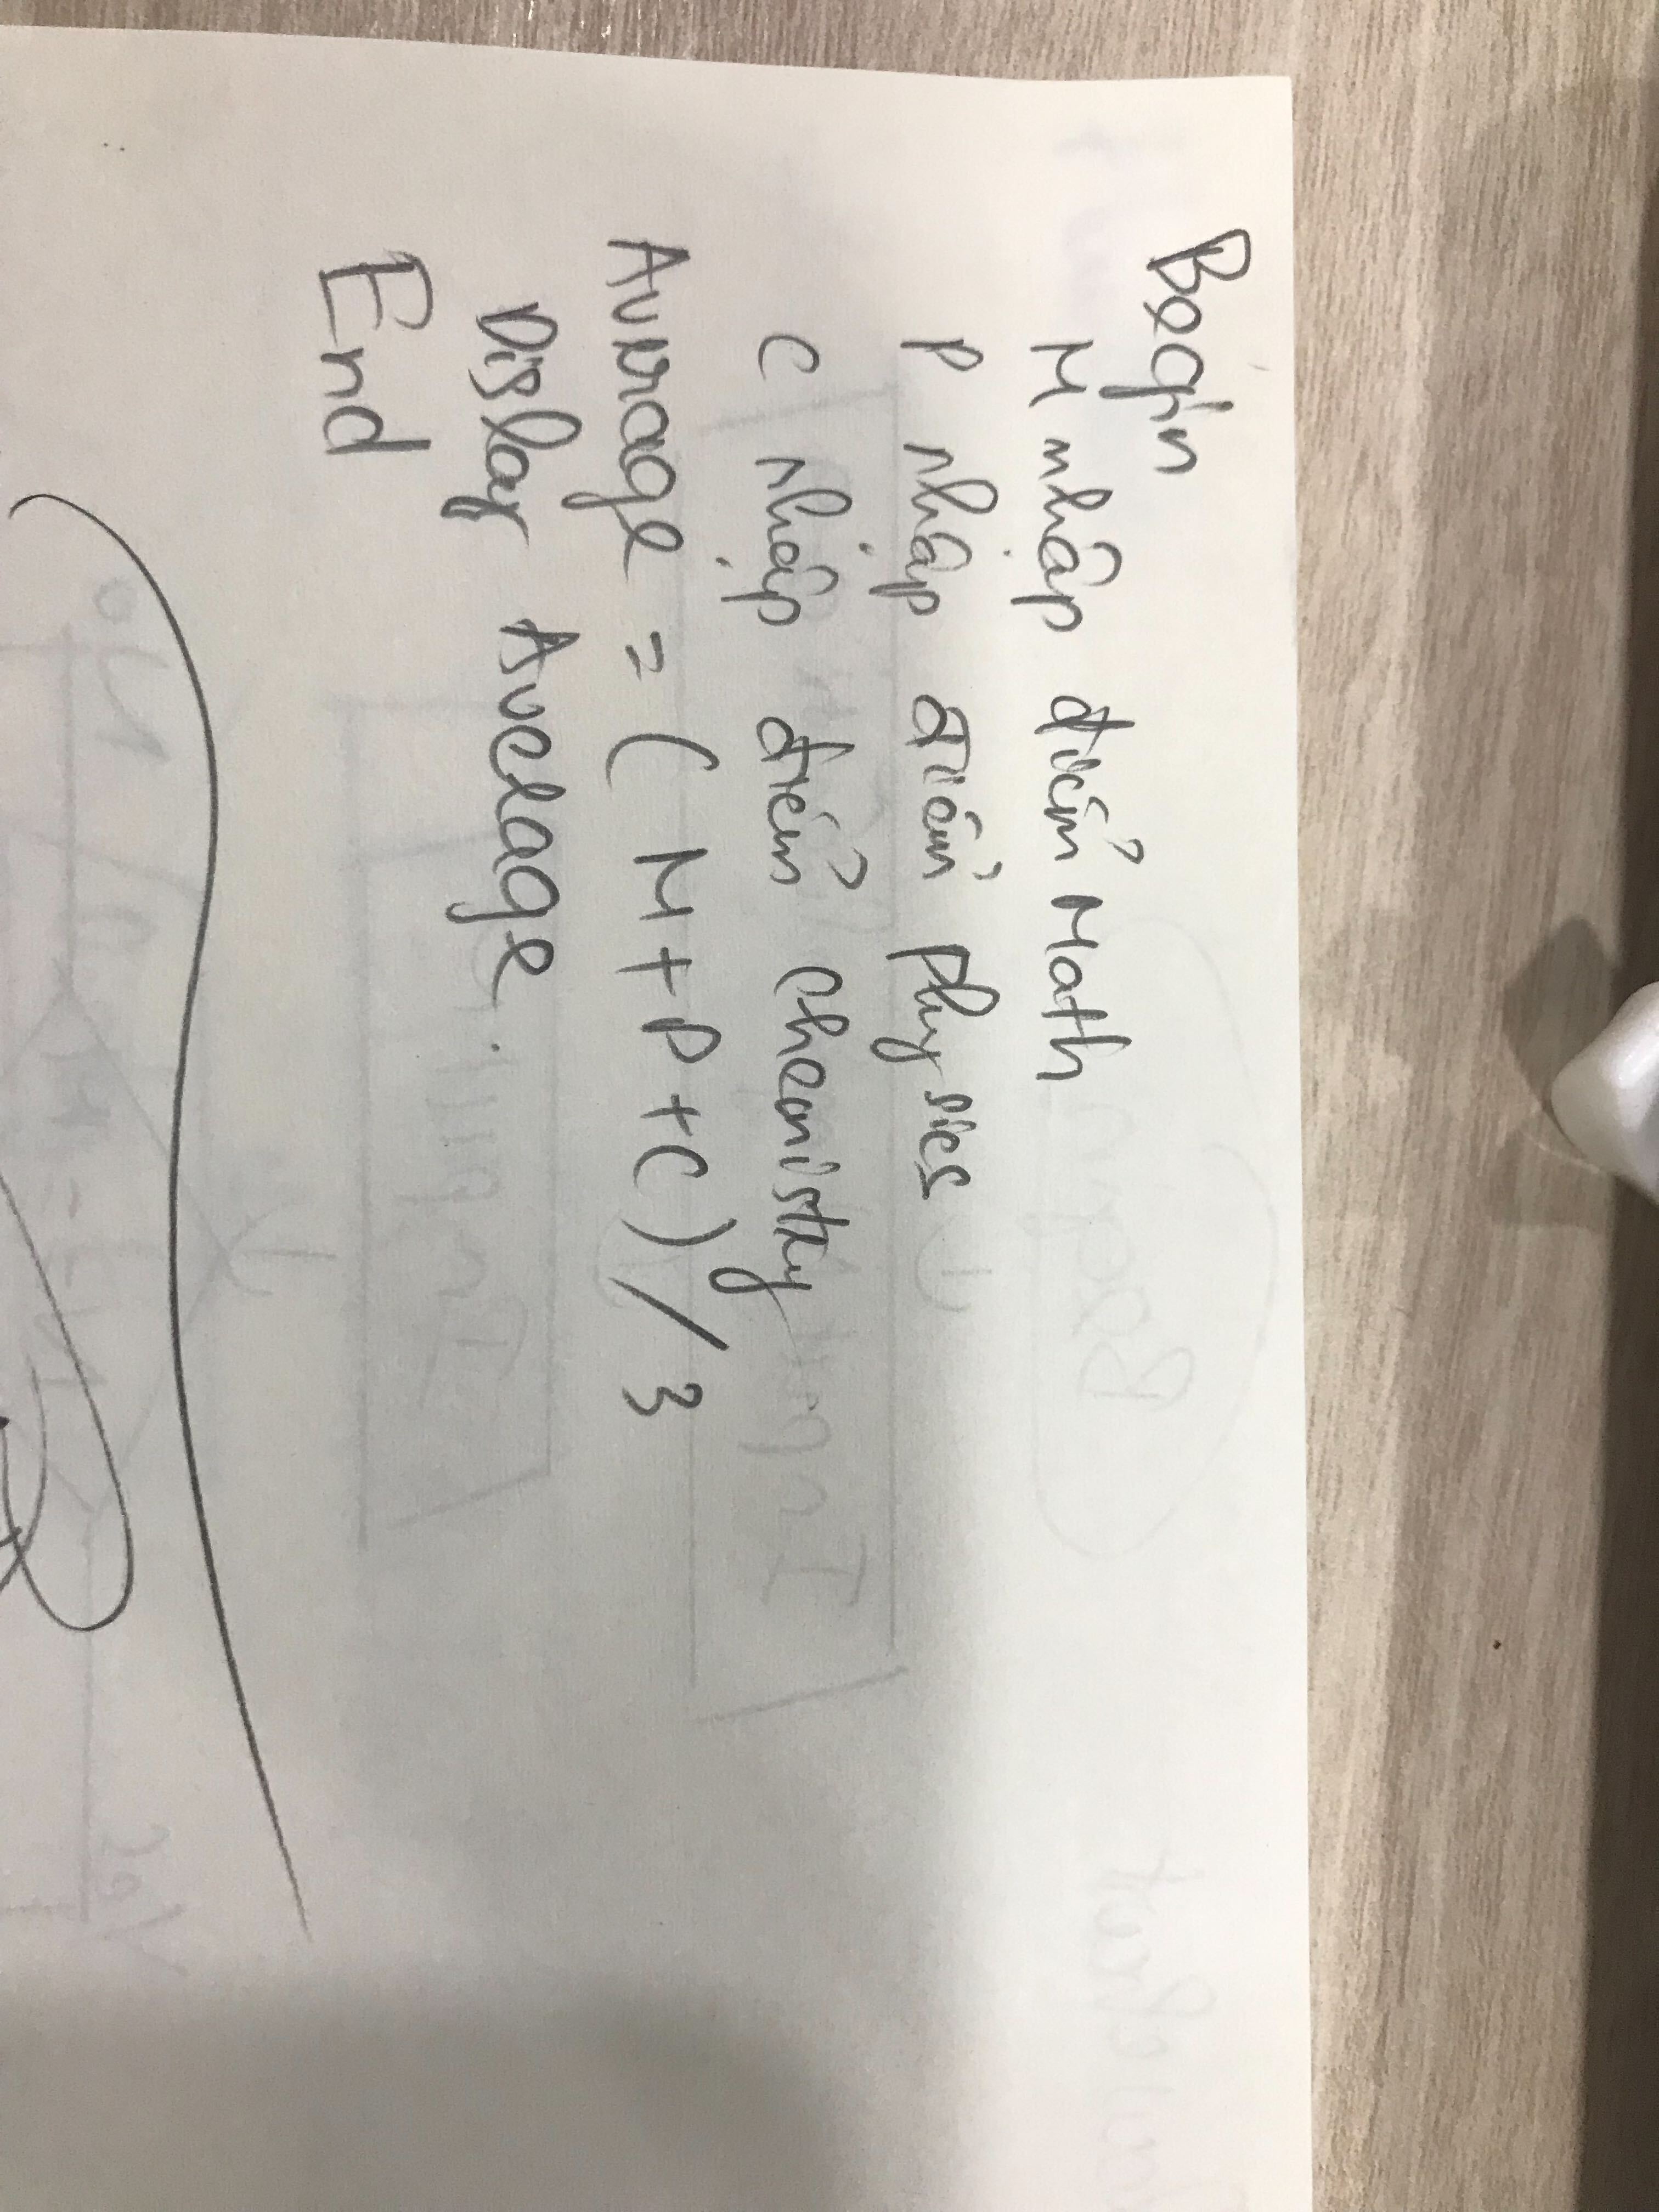 Begin
M nhập điểm Math
P nhập điểm Physics
C nhập điểm chemistry
Average = (M+P+C)/3
Display Average.
End